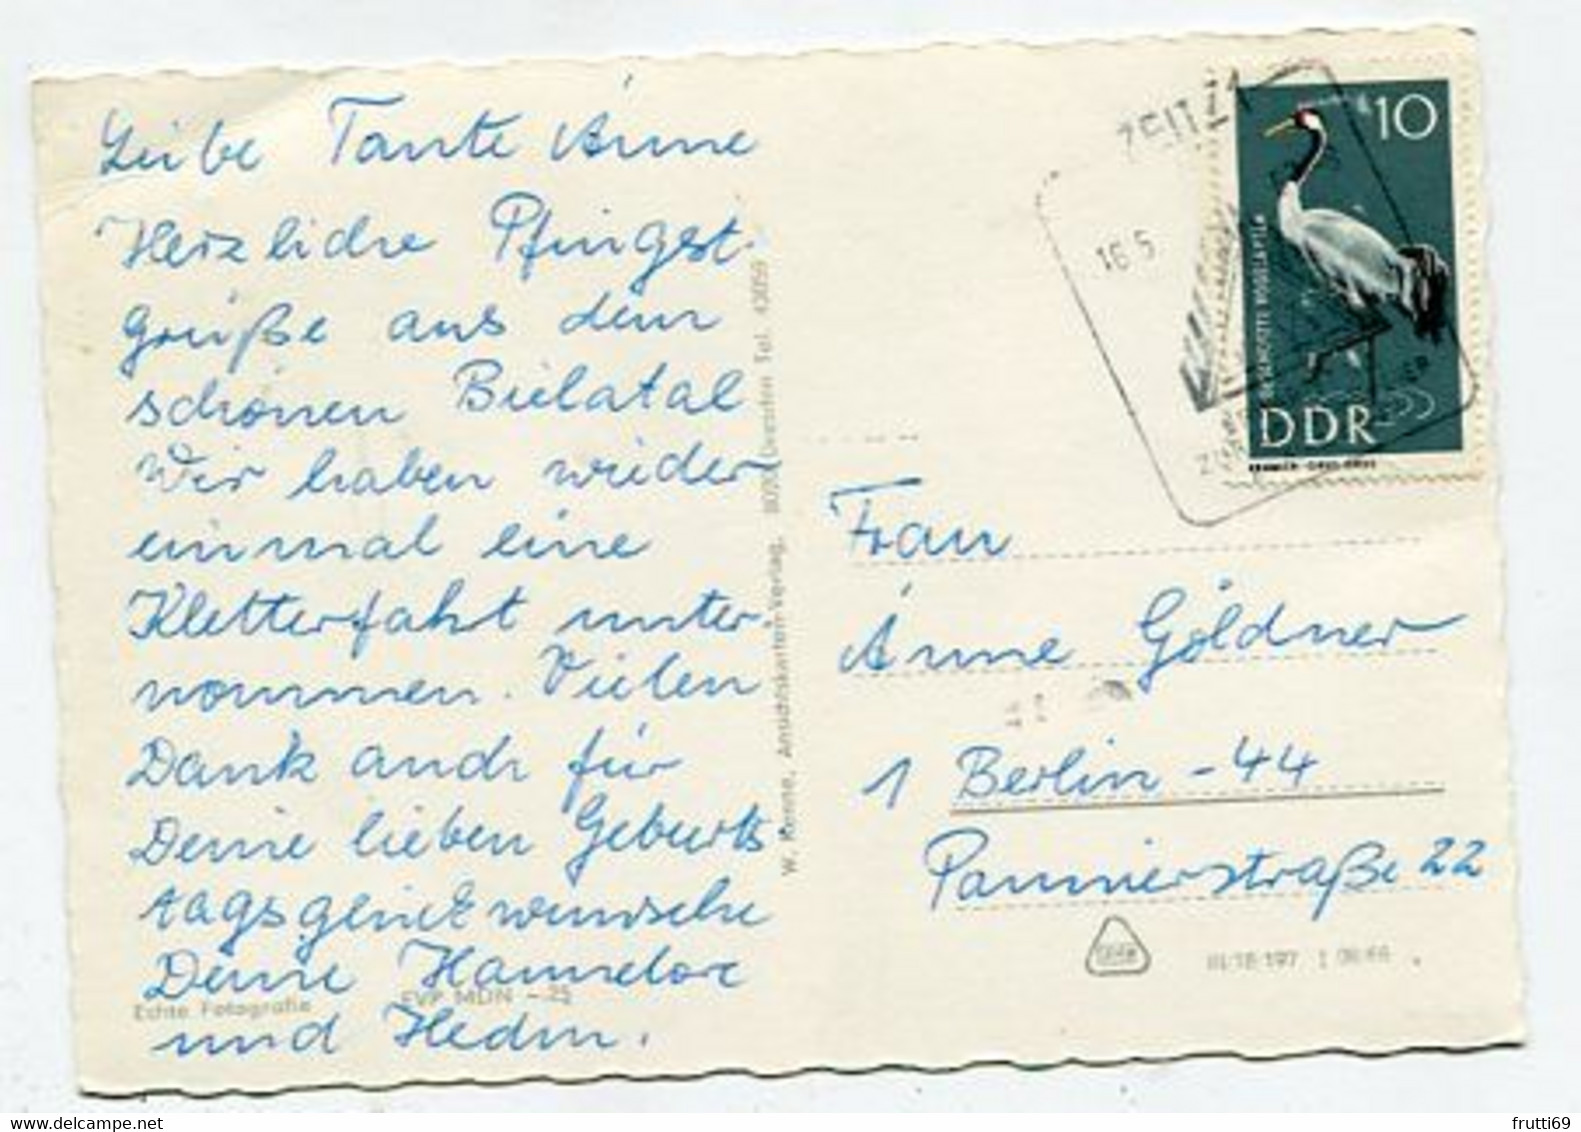 Liebe Tante Änne
Herzliche Pfingst-
grüße aus dem
schönen Bielatal
Wir haben wieder
einmal eine
Kletterfahrt unter-
nommen. Vielen
Dank auch für
Deine lieben Geburts
tagsglückwünsche
Deine Hannelore
und
Echte Fotografie
EVP MDN -.25
W. Kenne, Ansichtskarten-Verlag, Dresden Tel. 43059
16.5
10
GESCHÜTZTE VÖGEL
DDR
KRANICH · GRUS GRUS
Frau
Änne Göldner
1 Berlin - 44
Pannierstraße 22
III/18/197
frutti69